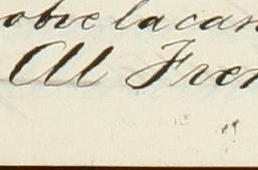 obre la can
Al Fren